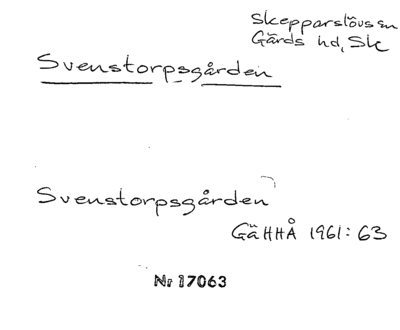 Skepparslövs sn
Gärds hd, Sk
Svenstorpsgården
Svenstorpsgården
GäHHÅ 1961:63
Nr 17063